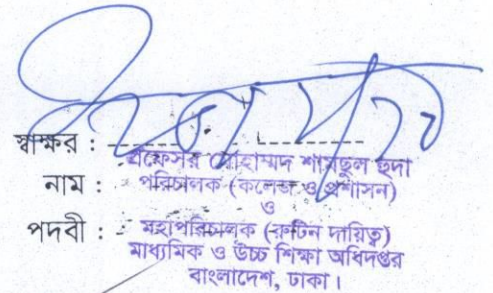 স্বাক্ষর :
প্রফেসর মোহাম্মদ শামছুল হুদা
নাম : পরিচালক (কলেজ ও প্রশাসন)
ও
পদবী : মহাপরিচালক (রুটিন দায়িত্ব)
মাধ্যমিক ও উচ্চ শিক্ষা অধিদপ্তর
বাংলাদেশ, ঢাকা।